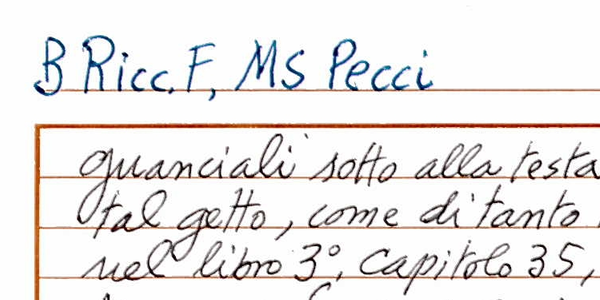 B Ricc. F, MS Pecci
guanciali sotto alla testa
tal getto, come di tanto
nel libro 3°, capitolo 35,